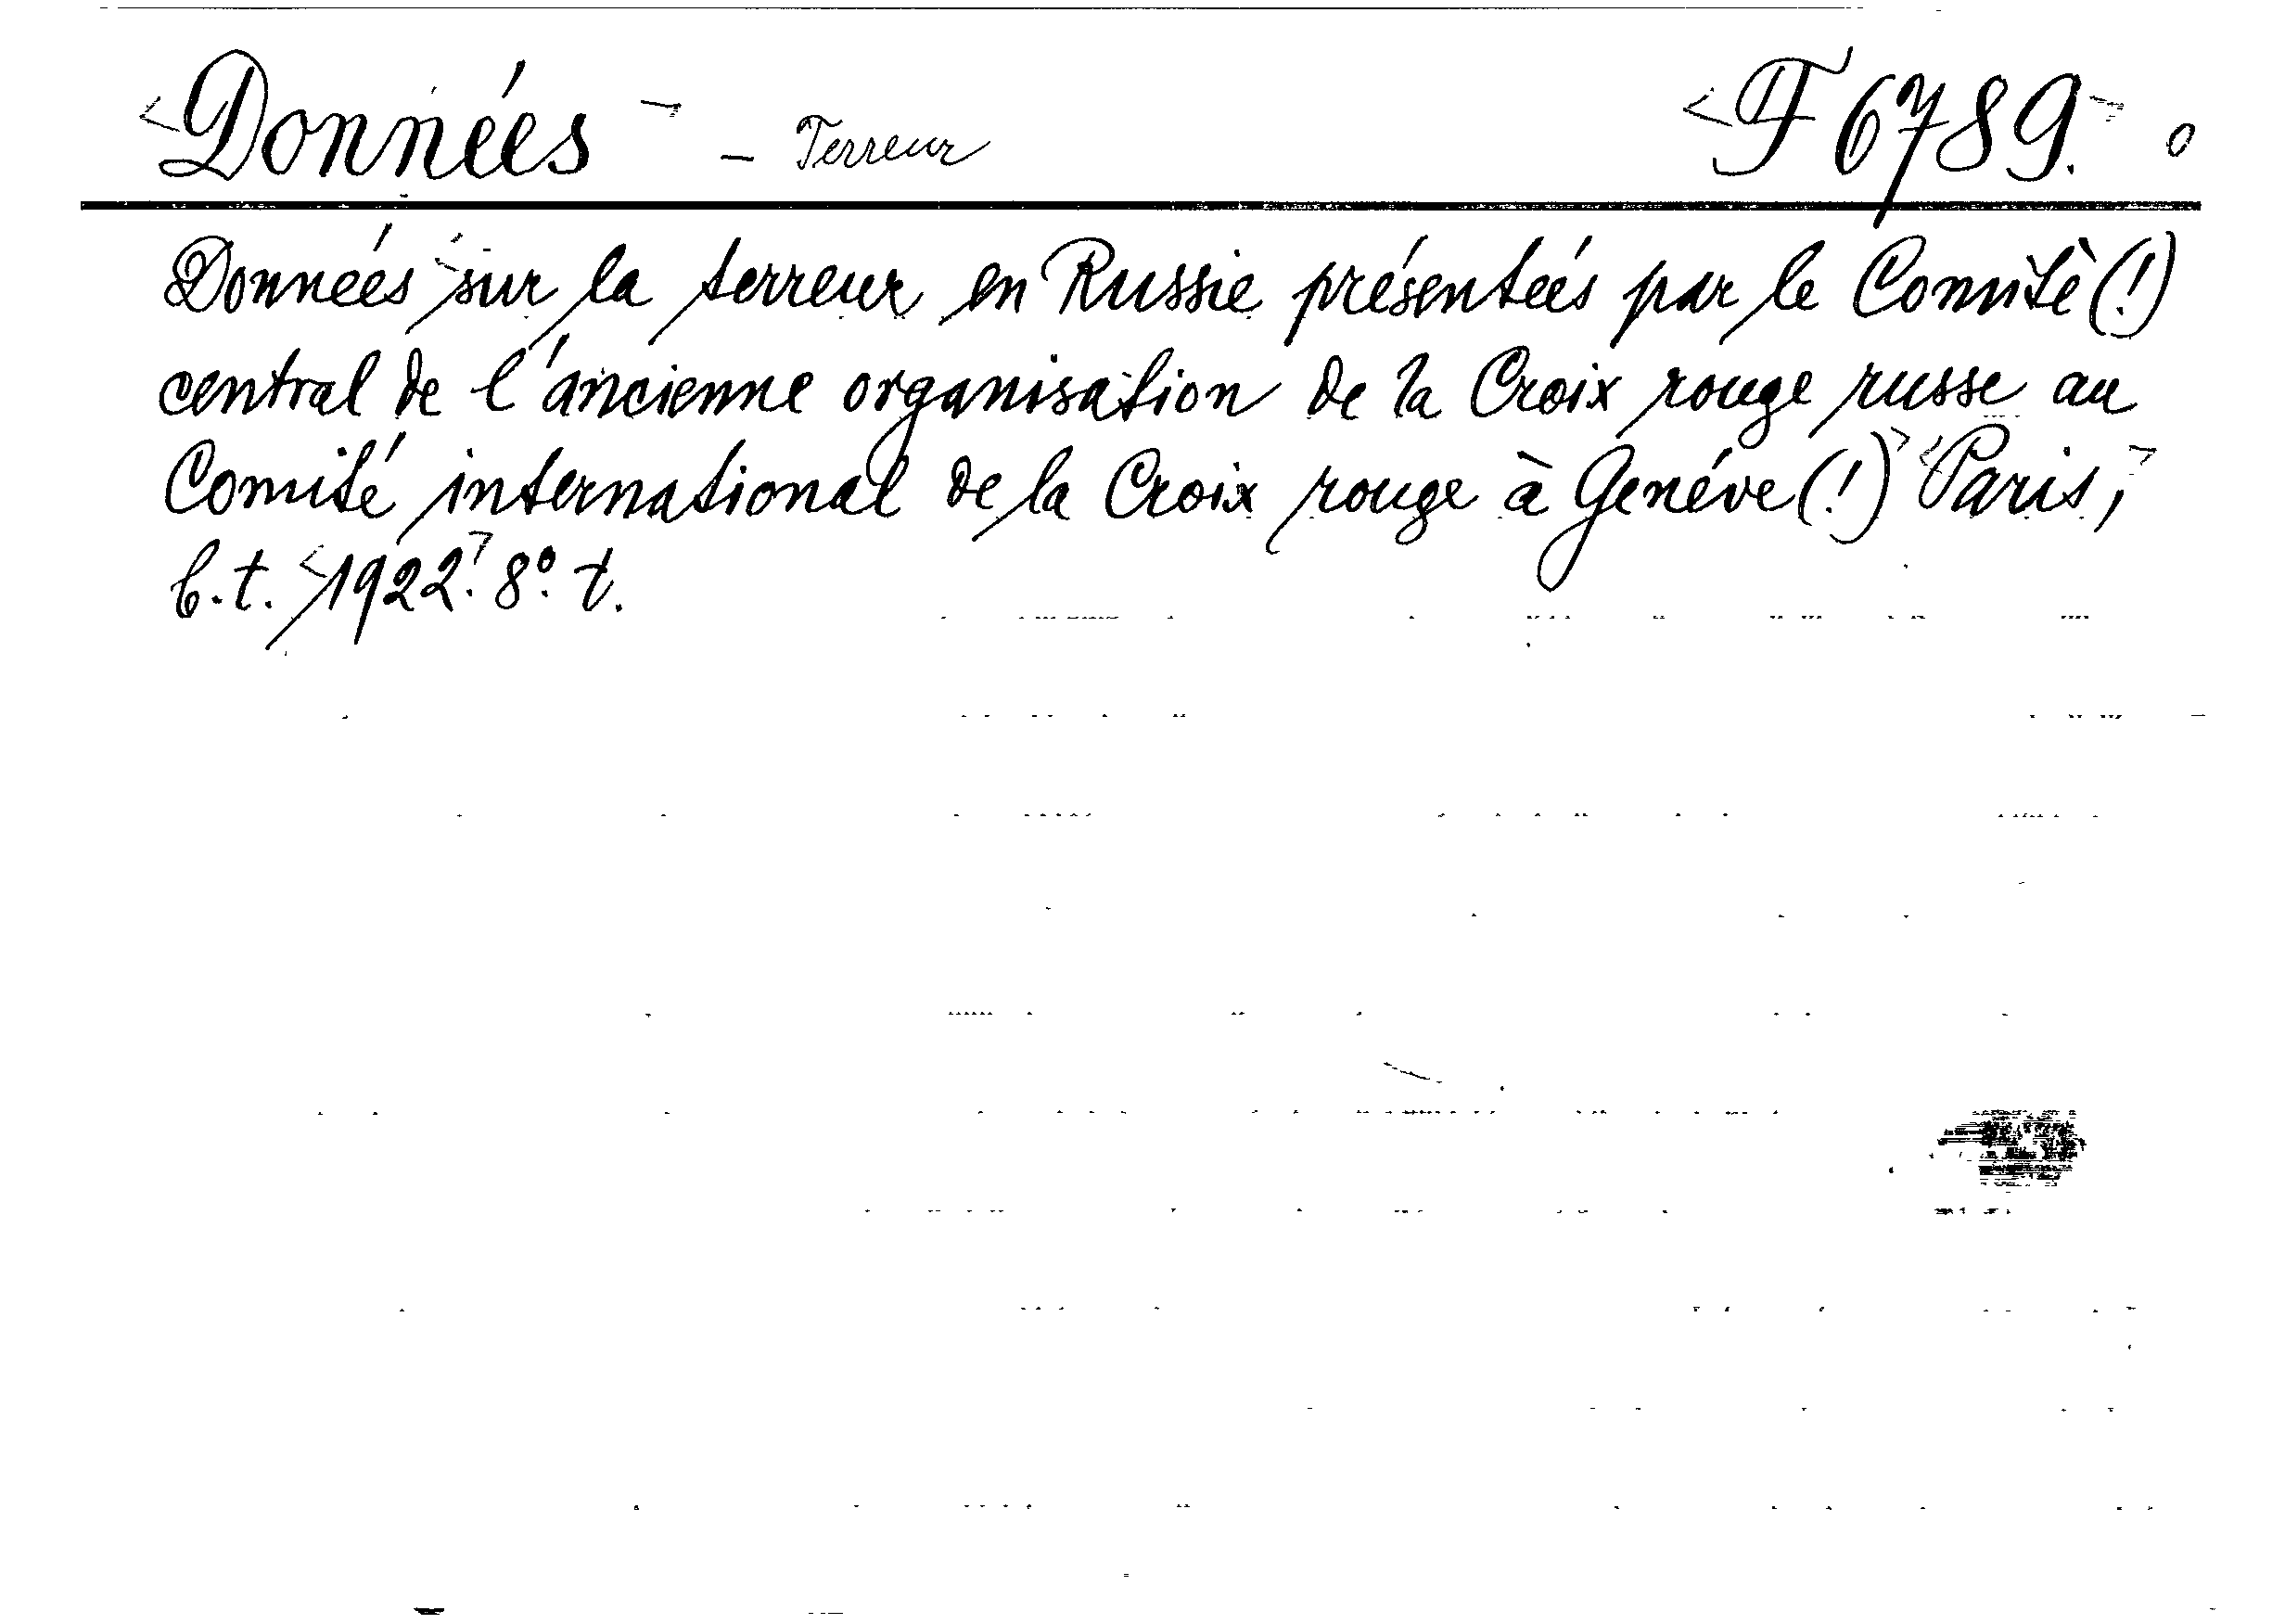 Données - Terreur F 6789. o
Données sur la terreur en Russie présentées par le Comitè (!)
central de l'ancienne organisation de la Croix rouge russe au
Comité international de la Croix rouge à Genéve (!) Paris,
b.t. 1922. 8º. t.